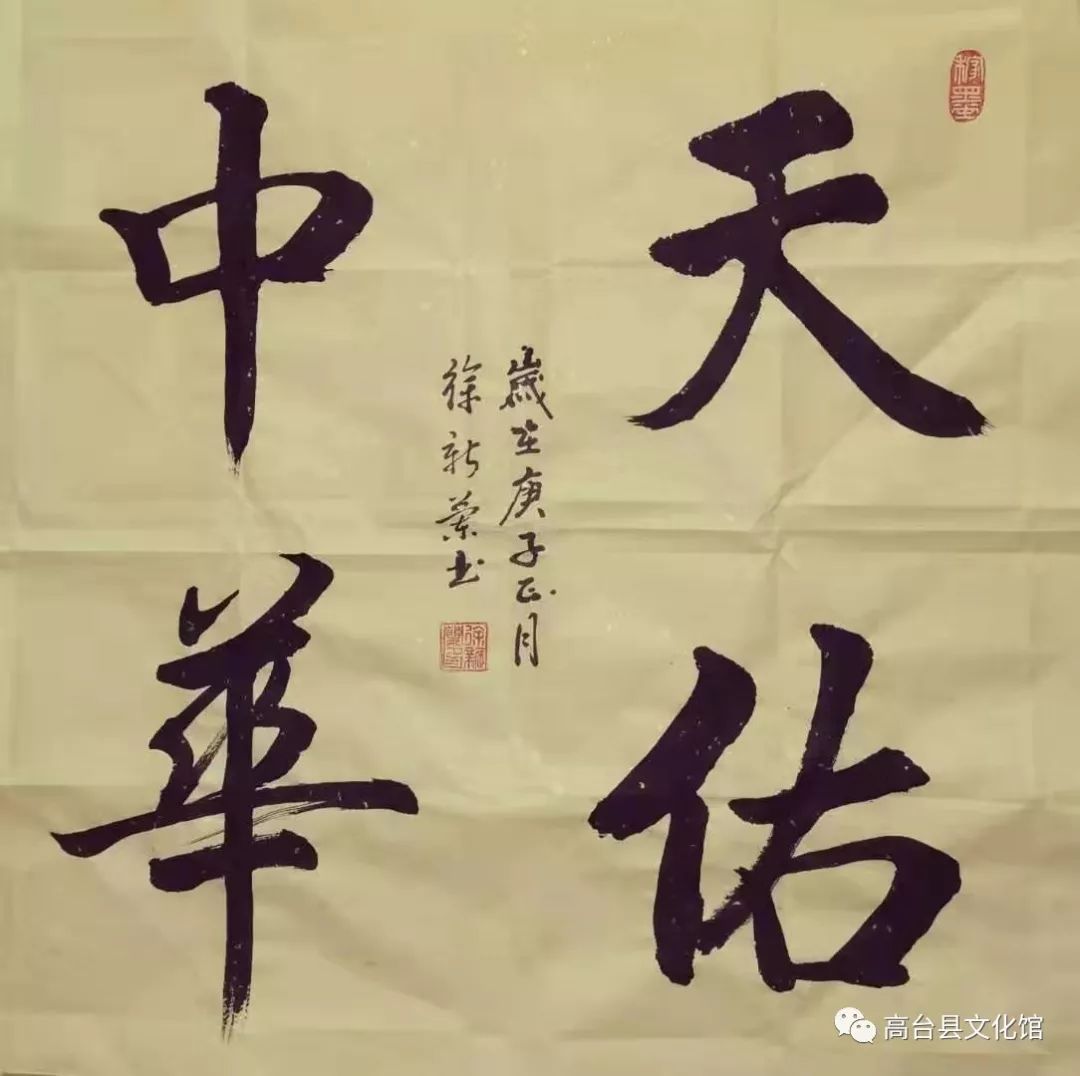 天佑
中華
歲在庚子正月
徐新榮书
高台县文化馆